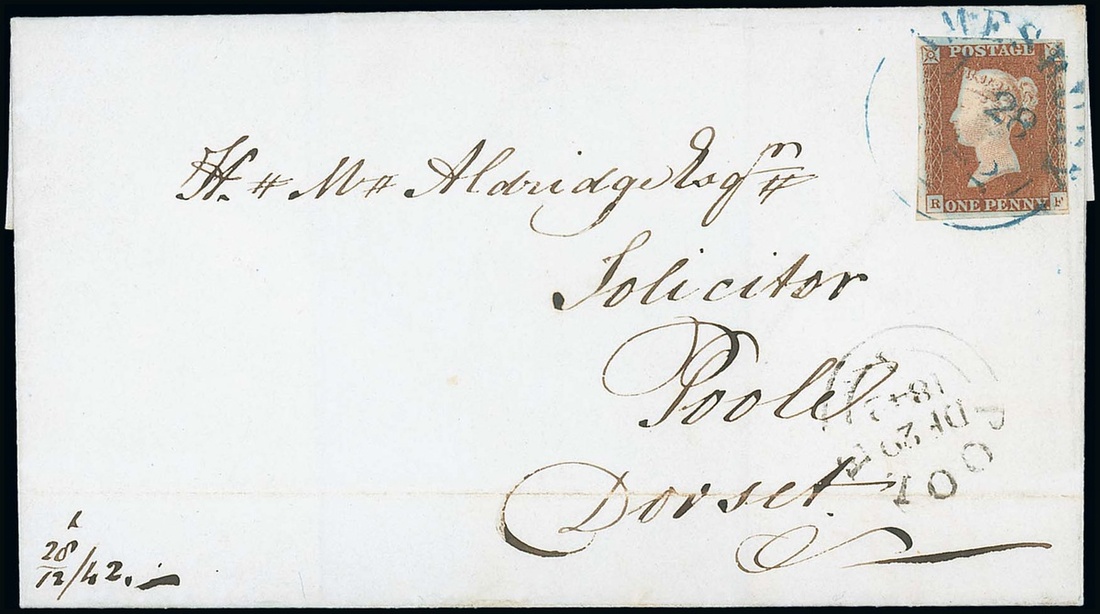 POSTAGE
28
R ONE PENNY F
H. M. Aldridge Esqr
Solicitor
Poole
Dorset
POOLE
DE 29
1842
28/12/42.